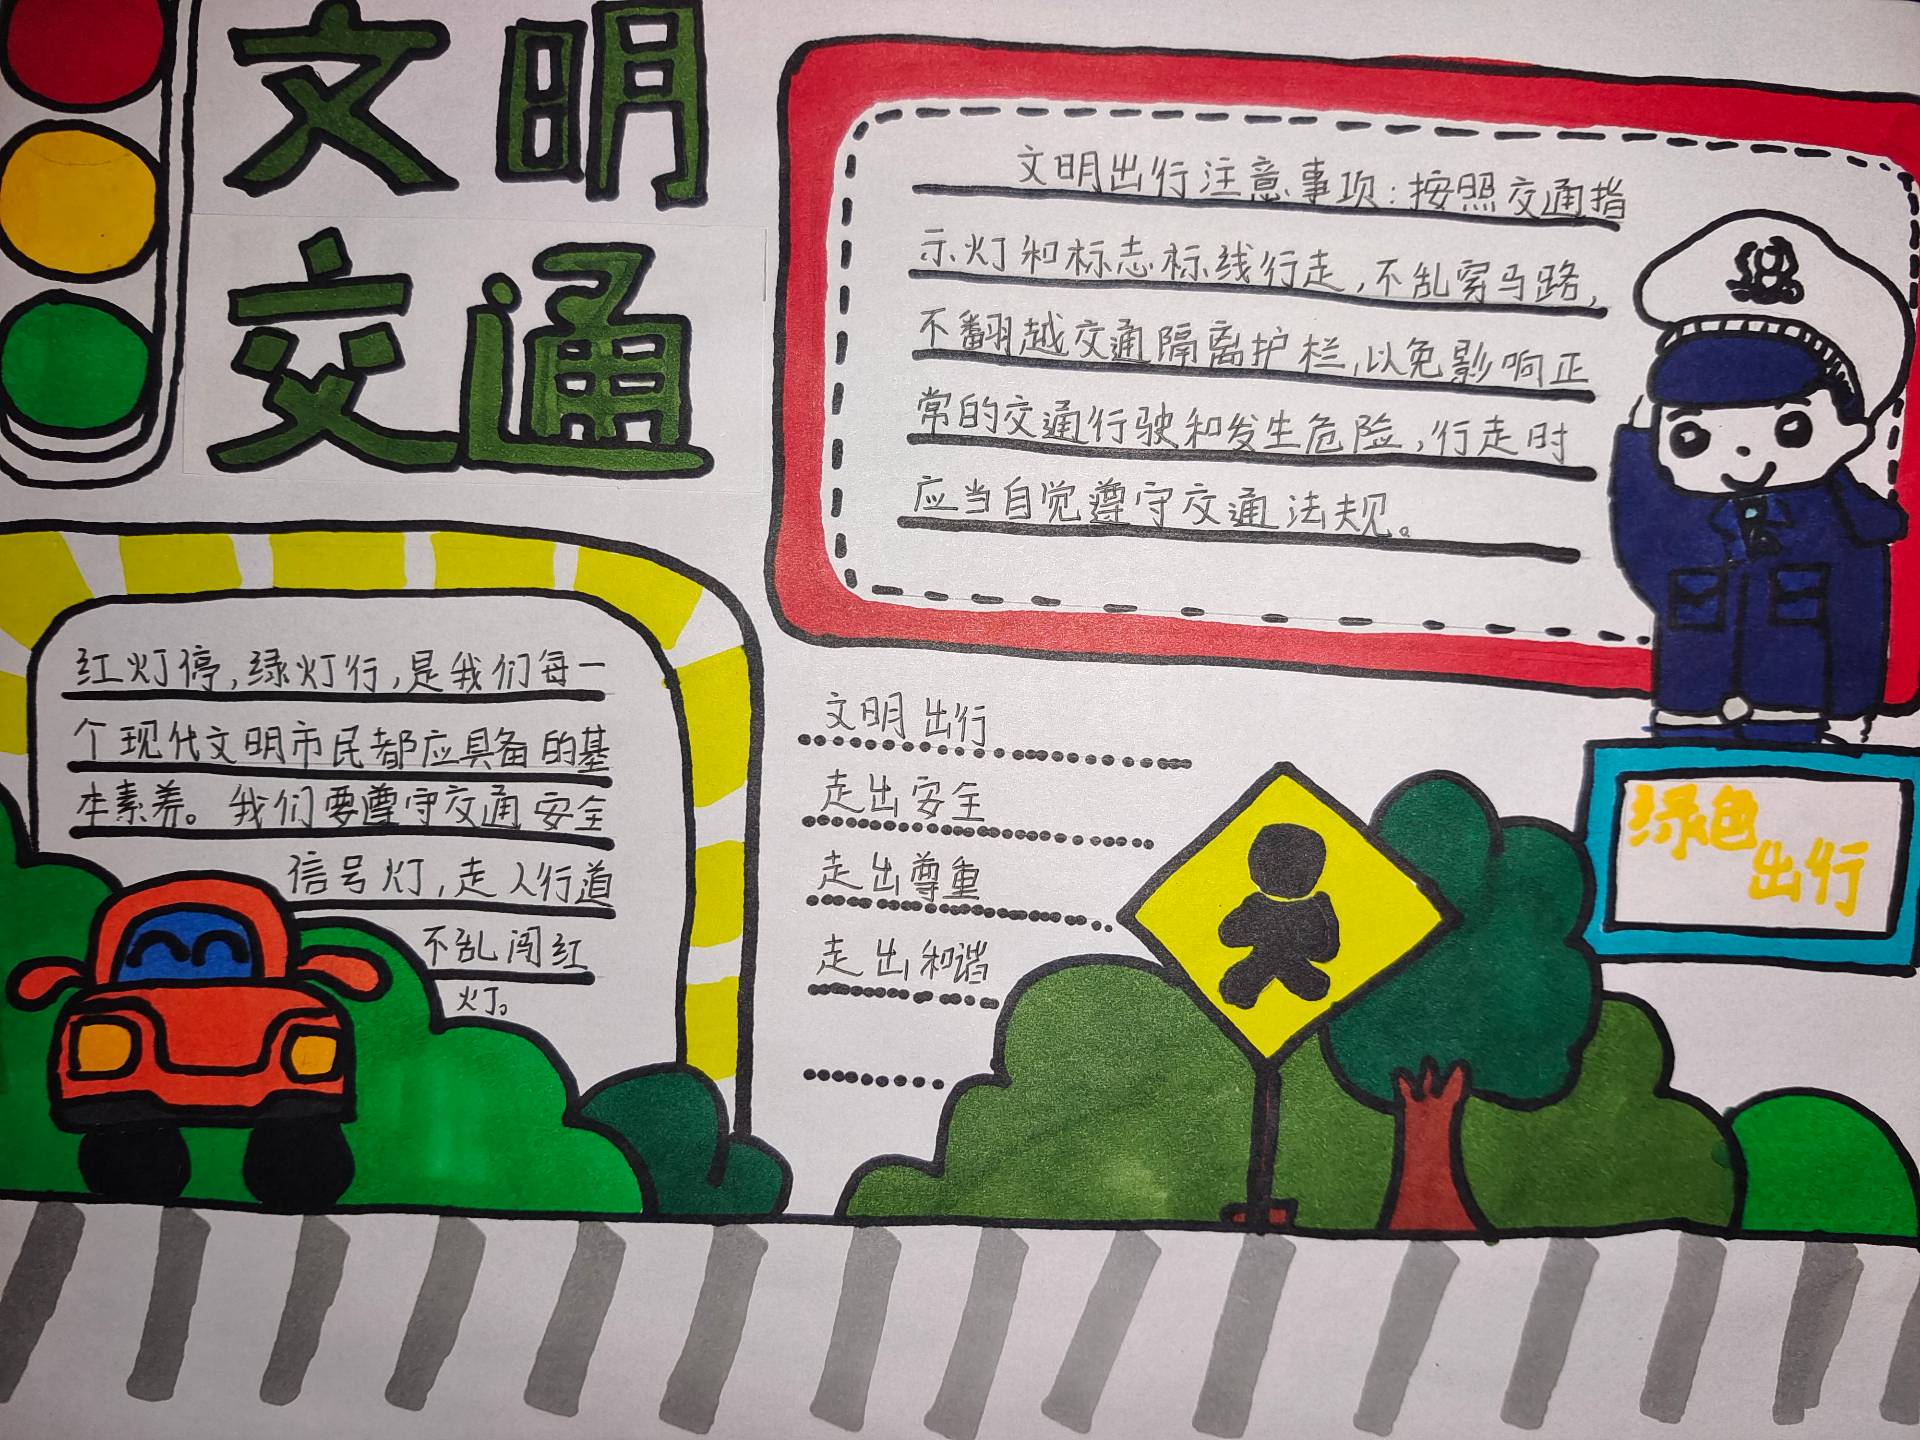 文明
交通
文明出行注意事项：按照交通指
示灯和标志标线行走，不乱穿马路，
不翻越交通隔离护栏，以免影响正
常的交通行驶和发生危险，行走时
应当自觉遵守交通法规。
红灯停，绿灯行，是我们每一
个现代文明市民都应具备的基
本素养。我们要遵守交通安全
信号灯，走人行道
不乱闯红
灯。
文明出行
走出安全
走出尊重
走出和谐
绿色
出行